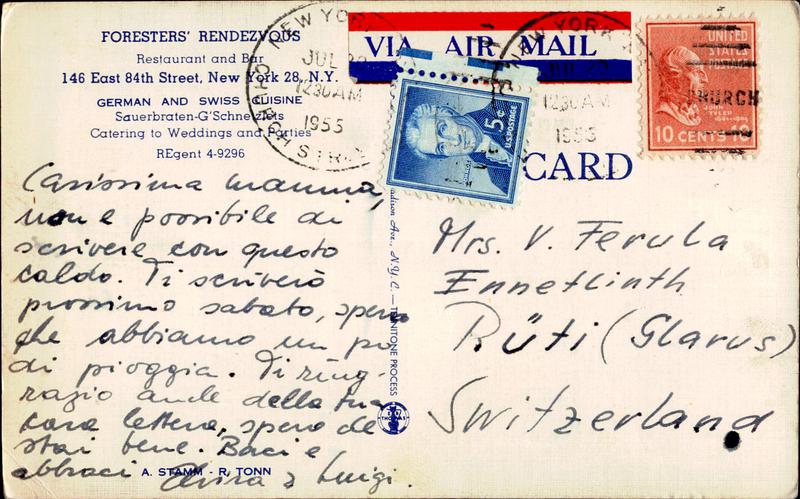 FORESTERS' RENDEZVOUS
Restaurant and Bar
146 East 84th Street, New York 28, N.Y.
GERMAN AND SWISS CUISINE
Sauerbraten-G'Schnetzlets
Catering to Weddings and Parties
REgent 4-9296
NEW YORK
JUL
1230 AM
1955
CHURCH ST
VIA AIR MAIL
NEW YORK
1230 AM
1955
5c
U.S. POSTAGE
UNITED
STATES
JOHN
TYLER
10 CENTS 10
CHURCH
CARD
Carissima mamma,
non e possibile di
scrivere con questo
caldo. Ti scriverò
prossimo sabato, spero
che abbiamo un po
di pioggia. Ti ring-
razio anche della tua
cara lettera, spero che
stai bene. Baci e
abbraci
& Luigi.
A. STAMM - R. TONN
adison Ave., N.Y.C. — TRANITONE PROCESS
Mrs. V. Ferula
Ennetlinth
Rüti (Glarus)
Switzerland